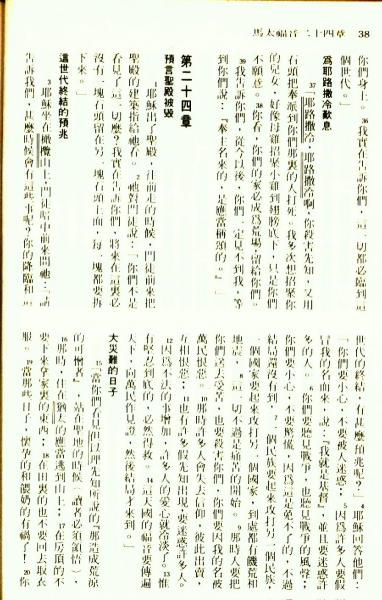 馬太福音二十四章　38
你們身上。36我實在告訴你們，這一切都必臨到這
個世代。」
為耶路撒冷歎息
37「耶路撒冷，耶路撒冷啊，你殺害先知，又用
石頭把奉派到你們那裏的人打死。我多次想招聚你
的兒女，好像母雞招聚小雞到翅膀底下，只是你們
不願意。38你看，你們的家必成為荒場，留給你們。
39我告訴你們，從今以後，你們一定見不到我，等
到你們說：『奉主名來的，是應當稱頌的。』」
第二十四章
預言聖殿被毀
1耶穌出了聖殿，往前走的時候，門徒前來把
聖殿的建築指給他看。2他對門徒說：「你們不是
看見了這一切麼？我實在告訴你們，將來在這裏必
沒有一塊石頭留在另一塊石頭上面，每一塊都要拆
下來。」
這世代終結的預兆
3耶穌坐在橄欖山上，門徒暗中前來問他：「請
告訴我們，甚麼時候會有這些事呢？你的降臨和這
世代的終結，有甚麼預兆呢？」4耶穌回答他們：
「你們要小心，不要被人迷惑；5因為許多人要假
冒我的名而來，說：『我就是基督』，並且要迷惑許
多的人。6你們要聽見戰爭，也聽見戰爭的風聲；
你們要小心，不要驚慌，因為這是免不了的，不過
結局還沒有到。7一個民族要起來攻打另一個民族，
一個國家要起來攻打另一個國家，到處都有饑荒和
地震，8這一切不過是痛苦的開始。9那時人要把
你們送去受苦，也要殺害你們，你們要因我的名被
萬民恨惡。10那時許多人會失去信仰，彼此出賣，
互相恨惡；11也有許多假先知出現，要迷惑許多人。
12因為不法的事增加，許多人的愛心就冷淡了。13惟
有堅忍到底的，必然得救。14這天國的福音要傳遍
天下，向萬民作見證，然後結局才來到。」
大災難的日子
15「當你們看見但以理先知所說的『那造成荒涼
的可憎者』，站在聖地的時候（讀者必須領悟），
16那時，住在猶太的應當逃到山上；17在房頂的不
要下來拿家裏的東西；18在田裏的也不要回去取衣
服。19當那些日子，懷孕的和餵奶的有禍了！20你